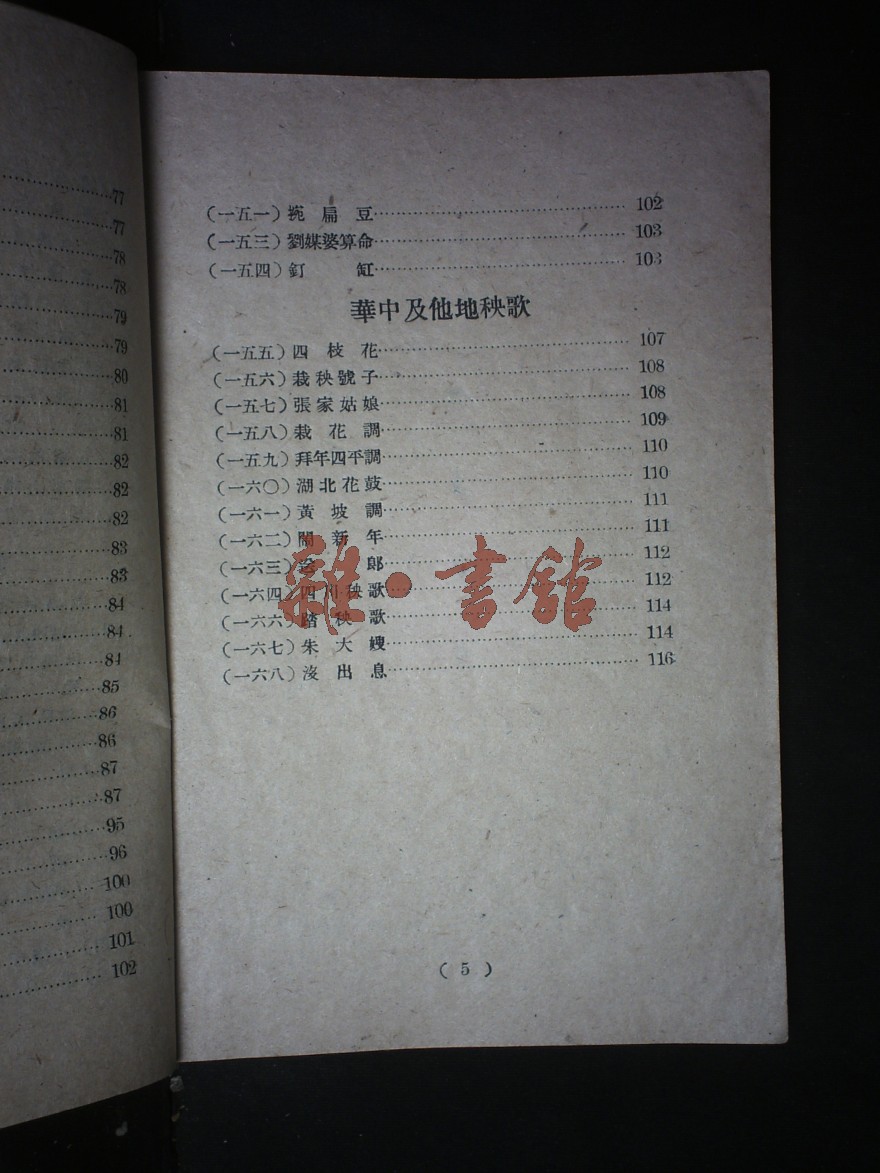 77
77
78
78
79
79
80
81
81
82
82
82
83
83
84
84
84
85
86
86
87
87
95
96
100
100
101
102
(一五一)豌扁豆 102
(一五三)劉媒婆算命 103
(一五四)釘缸 103
華中及他地秧歌
(一五五)四枝花 107
(一五六)栽秧號子 108
(一五七)張家姑娘 108
(一五八)栽花調 109
(一五九)拜年四平調 110
(一六〇)湖北花鼓 110
(一六一)黃坡調 111
(一六二)鬧新年 111
(一六三)郎 112
(一六四)四川秧歌 112
(一六六)踏秧歌 114
(一六七)朱大嫂 114
(一六八)沒出息 116
雜·書館
(5)